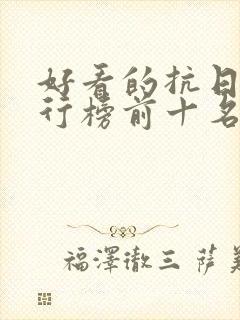 好看的抗日
行榜前十名
福澤徹三 萨